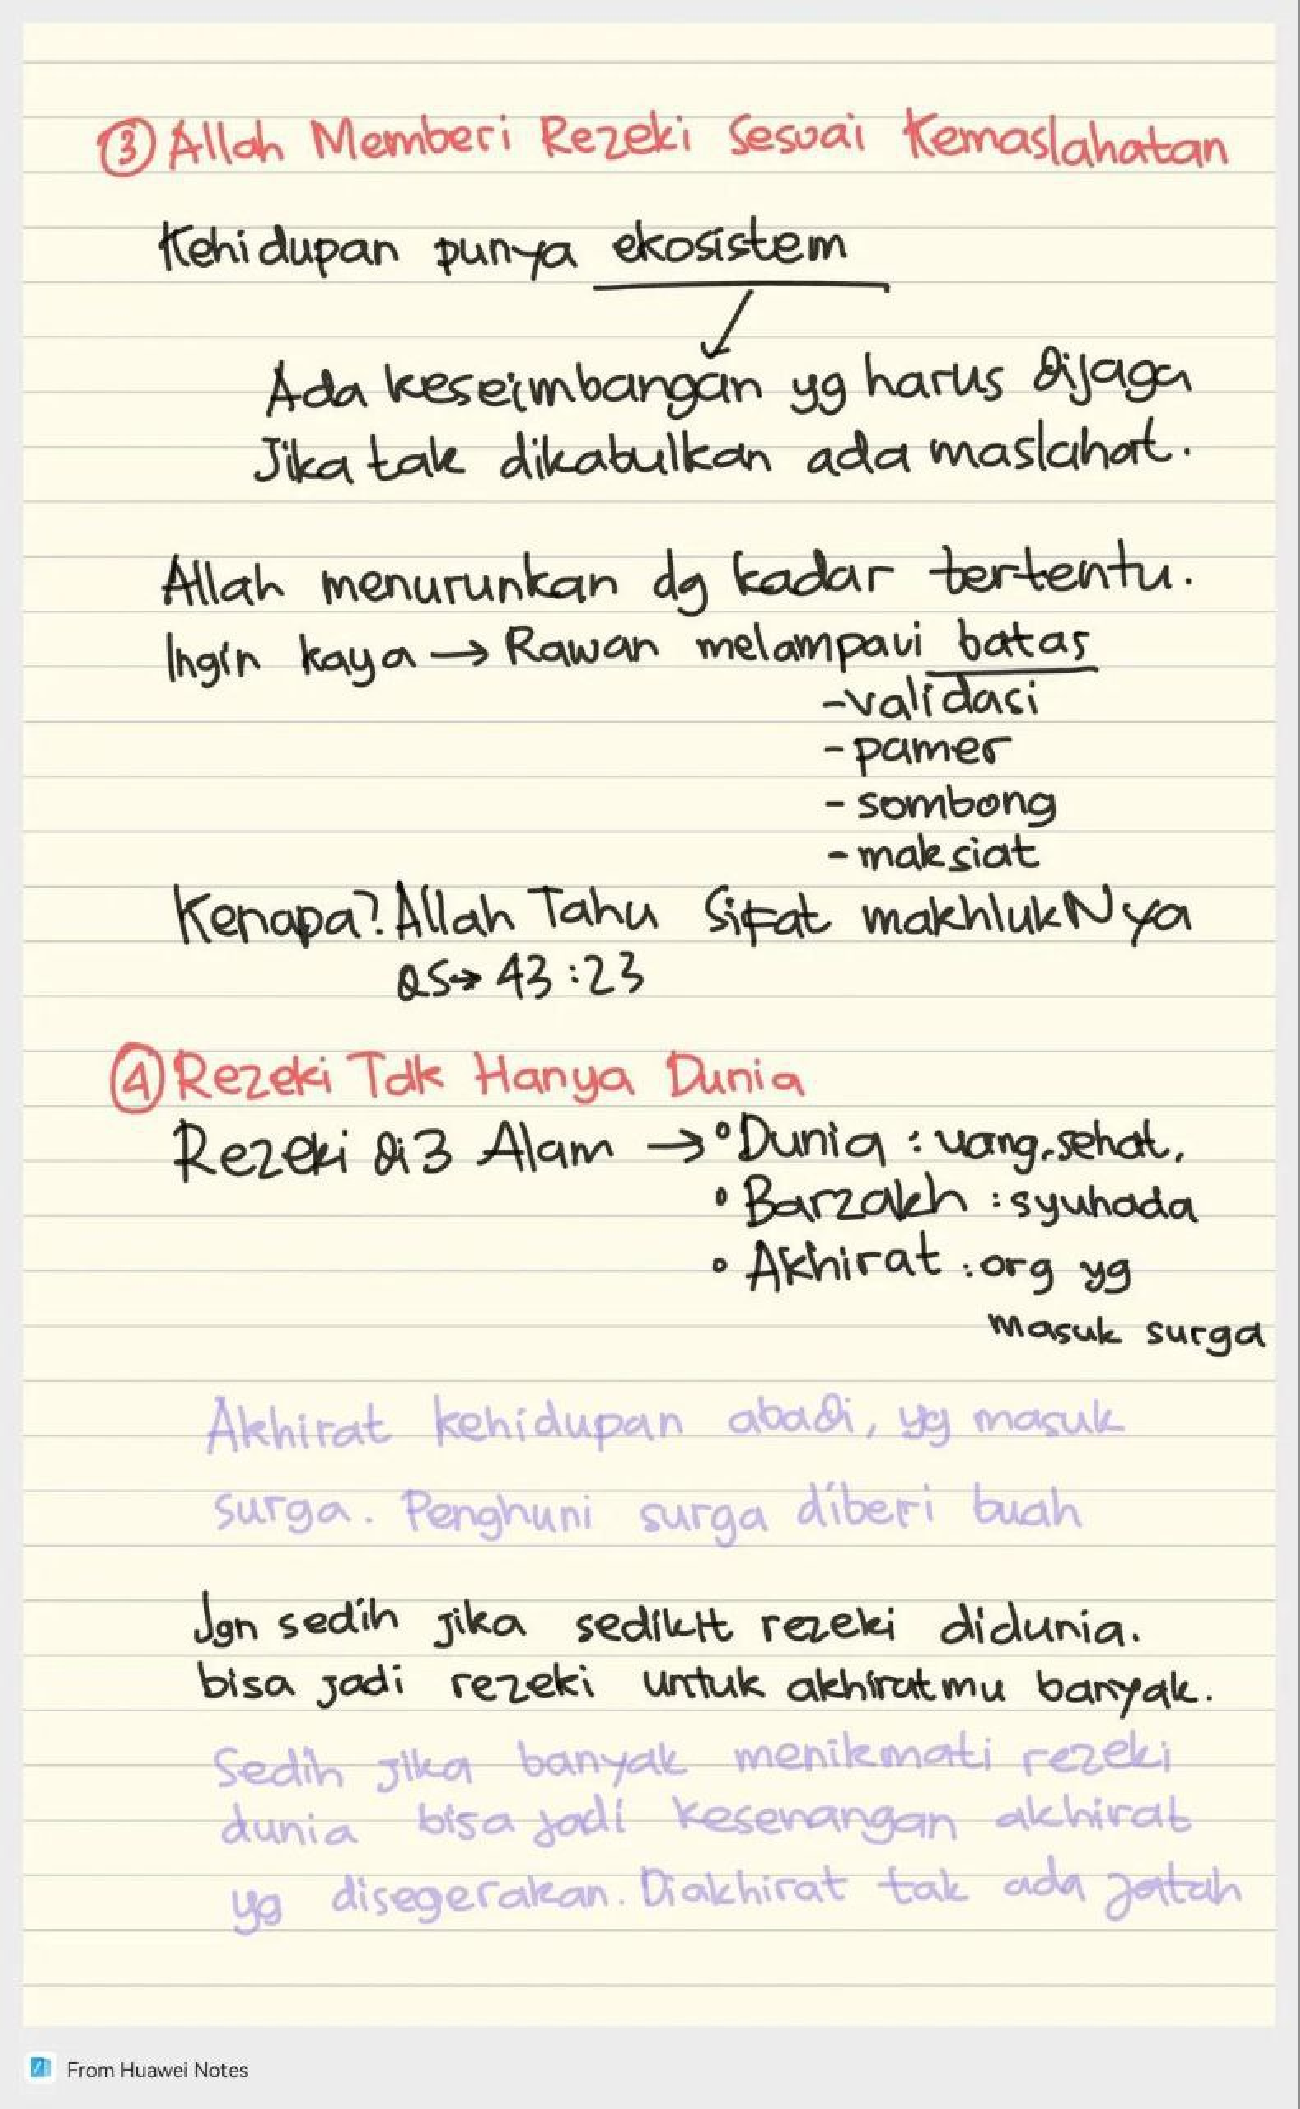 ③ Allah Memberi Rezeki Sesuai Kemaslahatan
Kehidupan punya ekosistem
Ada keseimbangan yg harus dijaga
Jika tak dikabulkan ada maslahat.
Allah menurunkan dg kadar tertentu.
Ingin kaya → Rawan melampaui batas
- validasi
- pamer
- sombong
- maksiat
Kenapa? Allah Tahu Sifat makhlukNya
QS → 43 : 23
④ Rezeki Tdk Hanya Dunia
Rezeki di 3 Alam → • Dunia : uang, sehat,
• Barzakh : syuhada
• Akhirat : org yg
masuk surga
Akhirat kehidupan abadi, yg masuk
surga. Penghuni surga diberi buah
Jgn sedih jika sedikit rezeki didunia.
bisa jadi rezeki untuk akhiratmu banyak.
Sedih jika banyak menikmati rezeki
dunia bisa jadi kesenangan akhirat
yg disegerakan. Diakhirat tak ada jatah
From Huawei Notes